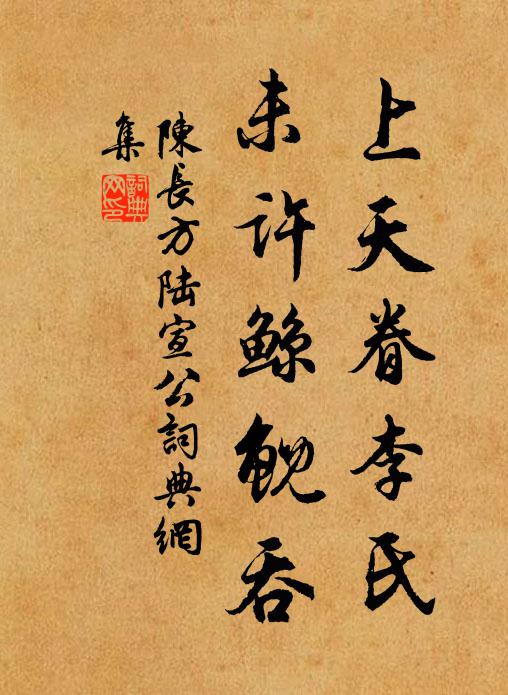 上天眷李氏
未许鲸鲵吞
陳長方陆宣公詞典網
集
詞典网印